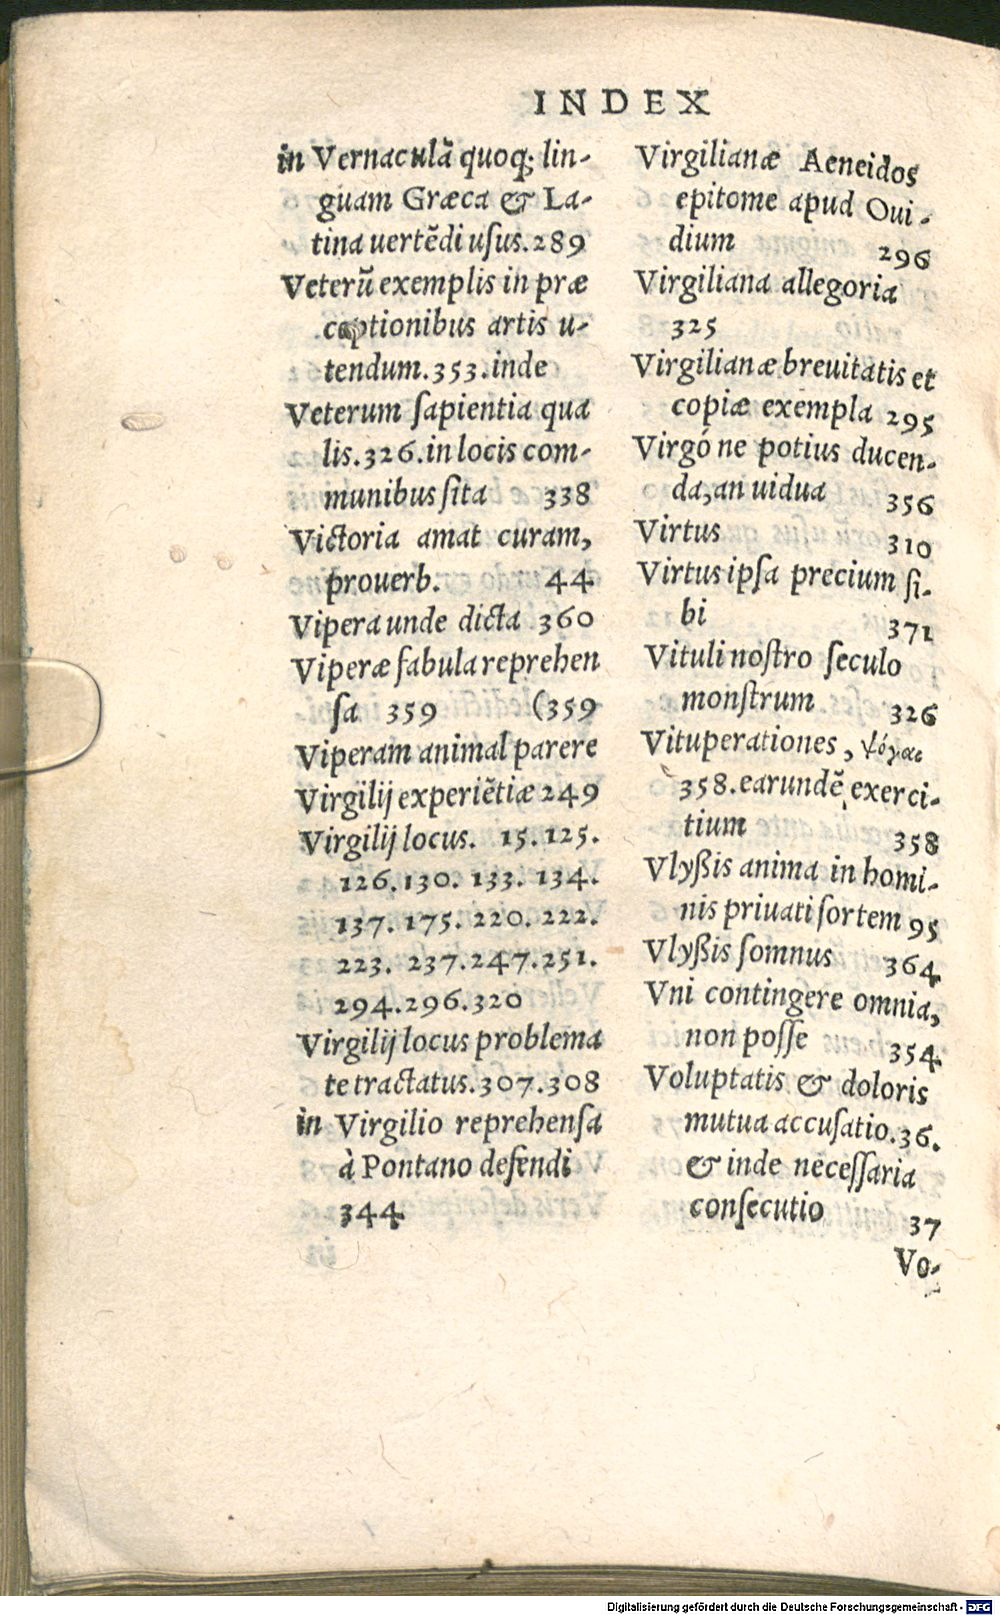 INDEX
in Vernaculã quoq; lin-
guam Græca & La-
tina uertẽdi uſus. 289
Veterũ exemplis in præ
ceptionibus artis u-
tendum. 353. inde
Veterum ſapientia qua
lis. 326. in locis com-
munibus ſita 338
Victoria amat curam,
prouerb. 44
Vipera unde dicta 360
Viperæ fabula reprehen
ſa 359 (359
Viperam animal parere
Virgilij experiẽtiæ 249
Virgilij locus. 15. 125.
126. 130. 133. 134.
137. 175. 220. 222.
223. 237. 247. 251.
294. 296. 320
Virgilij locus problema
te tractatus. 307. 308
in Virgilio reprehenſa
à Pontano defendi
344
Virgilianæ Aeneidos
epitome apud Oui-
dium 296
Virgiliana allegoria
325
Virgilianæ breuitatis et
copiæ exempla 295
Virgó ne potius ducen-
da, an uidua 356
Virtus 310
Virtus ipſa precium ſi-
bi 371
Vituli noſtro ſeculo
monſtrum 326
Vituperationes, ψόγοι
358. earundẽ exerci-
tium 358
Vlyßis anima in homi-
nis priuati ſortem 95
Vlyßis ſomnus 364
Vni contingere omnia,
non poſſe 354
Voluptatis & doloris
mutua accuſatio. 36.
& inde neceſſaria
conſecutio 37
Vo-
Digitalisierung gefördert durch die Deutsche Forschungsgemeinschaft - DFG